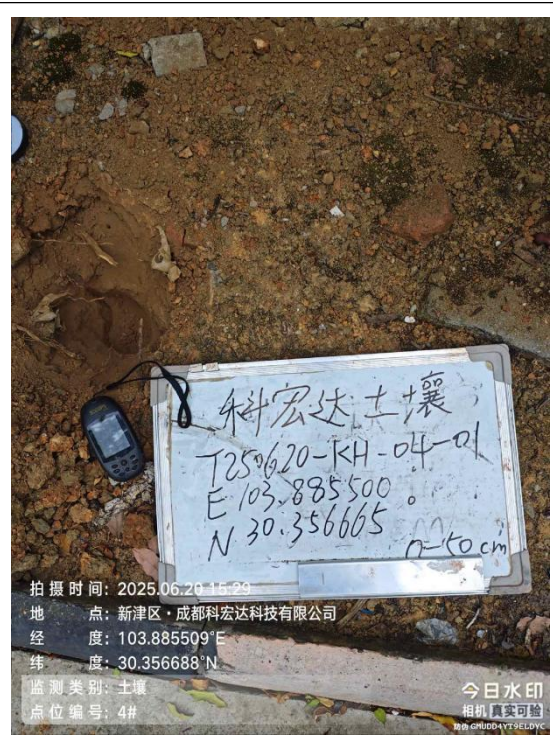 科宏达土壤
T250620-KH-04-01
E 103.885500°
N 30.356665°
0-50cm
拍摄时间: 2025.06.20 15:29
地 点: 新津区·成都科宏达科技有限公司
经 度: 103.885509°E
纬 度: 30.356688°N
监测类别: 土壤
点位编号: 4#
今日水印
相机 真实可验
防伪 GMUDD4YT9ELDYC